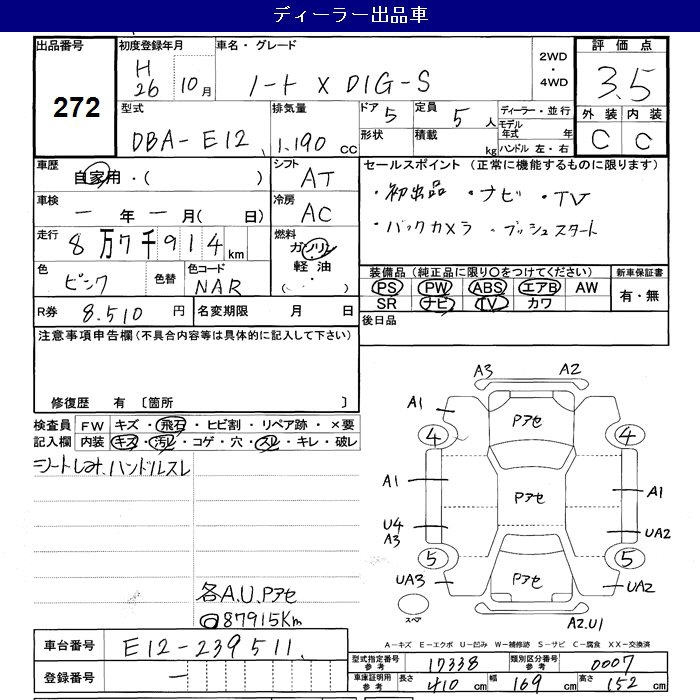 ディーラー出品車
出品番号 初度登録年月 車名・グレード 2WD ・ 4WD 評価点
272 H26 10月 ノート X DIG-S 3.5
型式 排気量 ドア 5 定員 5人 ディーラー・並行 外装 内装
DBA-E12 1.190cc 形状 積載 kg モデル年式 年 ハンドル 左・右 C C
車歴 自家用・( ) シフト AT セールスポイント (正常に機能するものに限ります)
車検 一年一月( 日) 冷房 AC ・初出品 ・ナビ ・TV
走行 8万7千914km 燃料 ガソリン・軽油・( ) ・バックカメラ ・プッシュスタート
色 ピンク 色替 色コード NAR
装備品 (純正品に限り○をつけてください) 新車保証書
PS PW ABS エアB AW 有・無
SR ナビ TV カワ
R券 8.510円 名変期限 月 日 後日品
注意事項申告欄(不具合内容等は具体的に記入して下さい)
修復歴 有 〔箇所 〕
検査員記入欄 FW キズ・飛石・ヒビ割・リペア跡・×要
内装 キズ・汚レ・コゲ・穴・スレ・キレ・破レ
シートしみ、ハンドルスレ
各A.U.Pアセ
87915Km
A3 A2
A1 Pアセ
4 4
A1 Pアセ A1
U4 A3 UA2
5 5
UA3 Pアセ UA2
スペア A2.U1
A-キズ E-エクボ U-凹み W-補修跡 S-サビ C-腐食 XX-交換済
車台番号 E12-239511
登録番号 一
型式指定番号 参考 17338 類別区分番号 参考 0007
車庫証明用 参考 長さ 410cm 幅 169cm 高さ 152cm